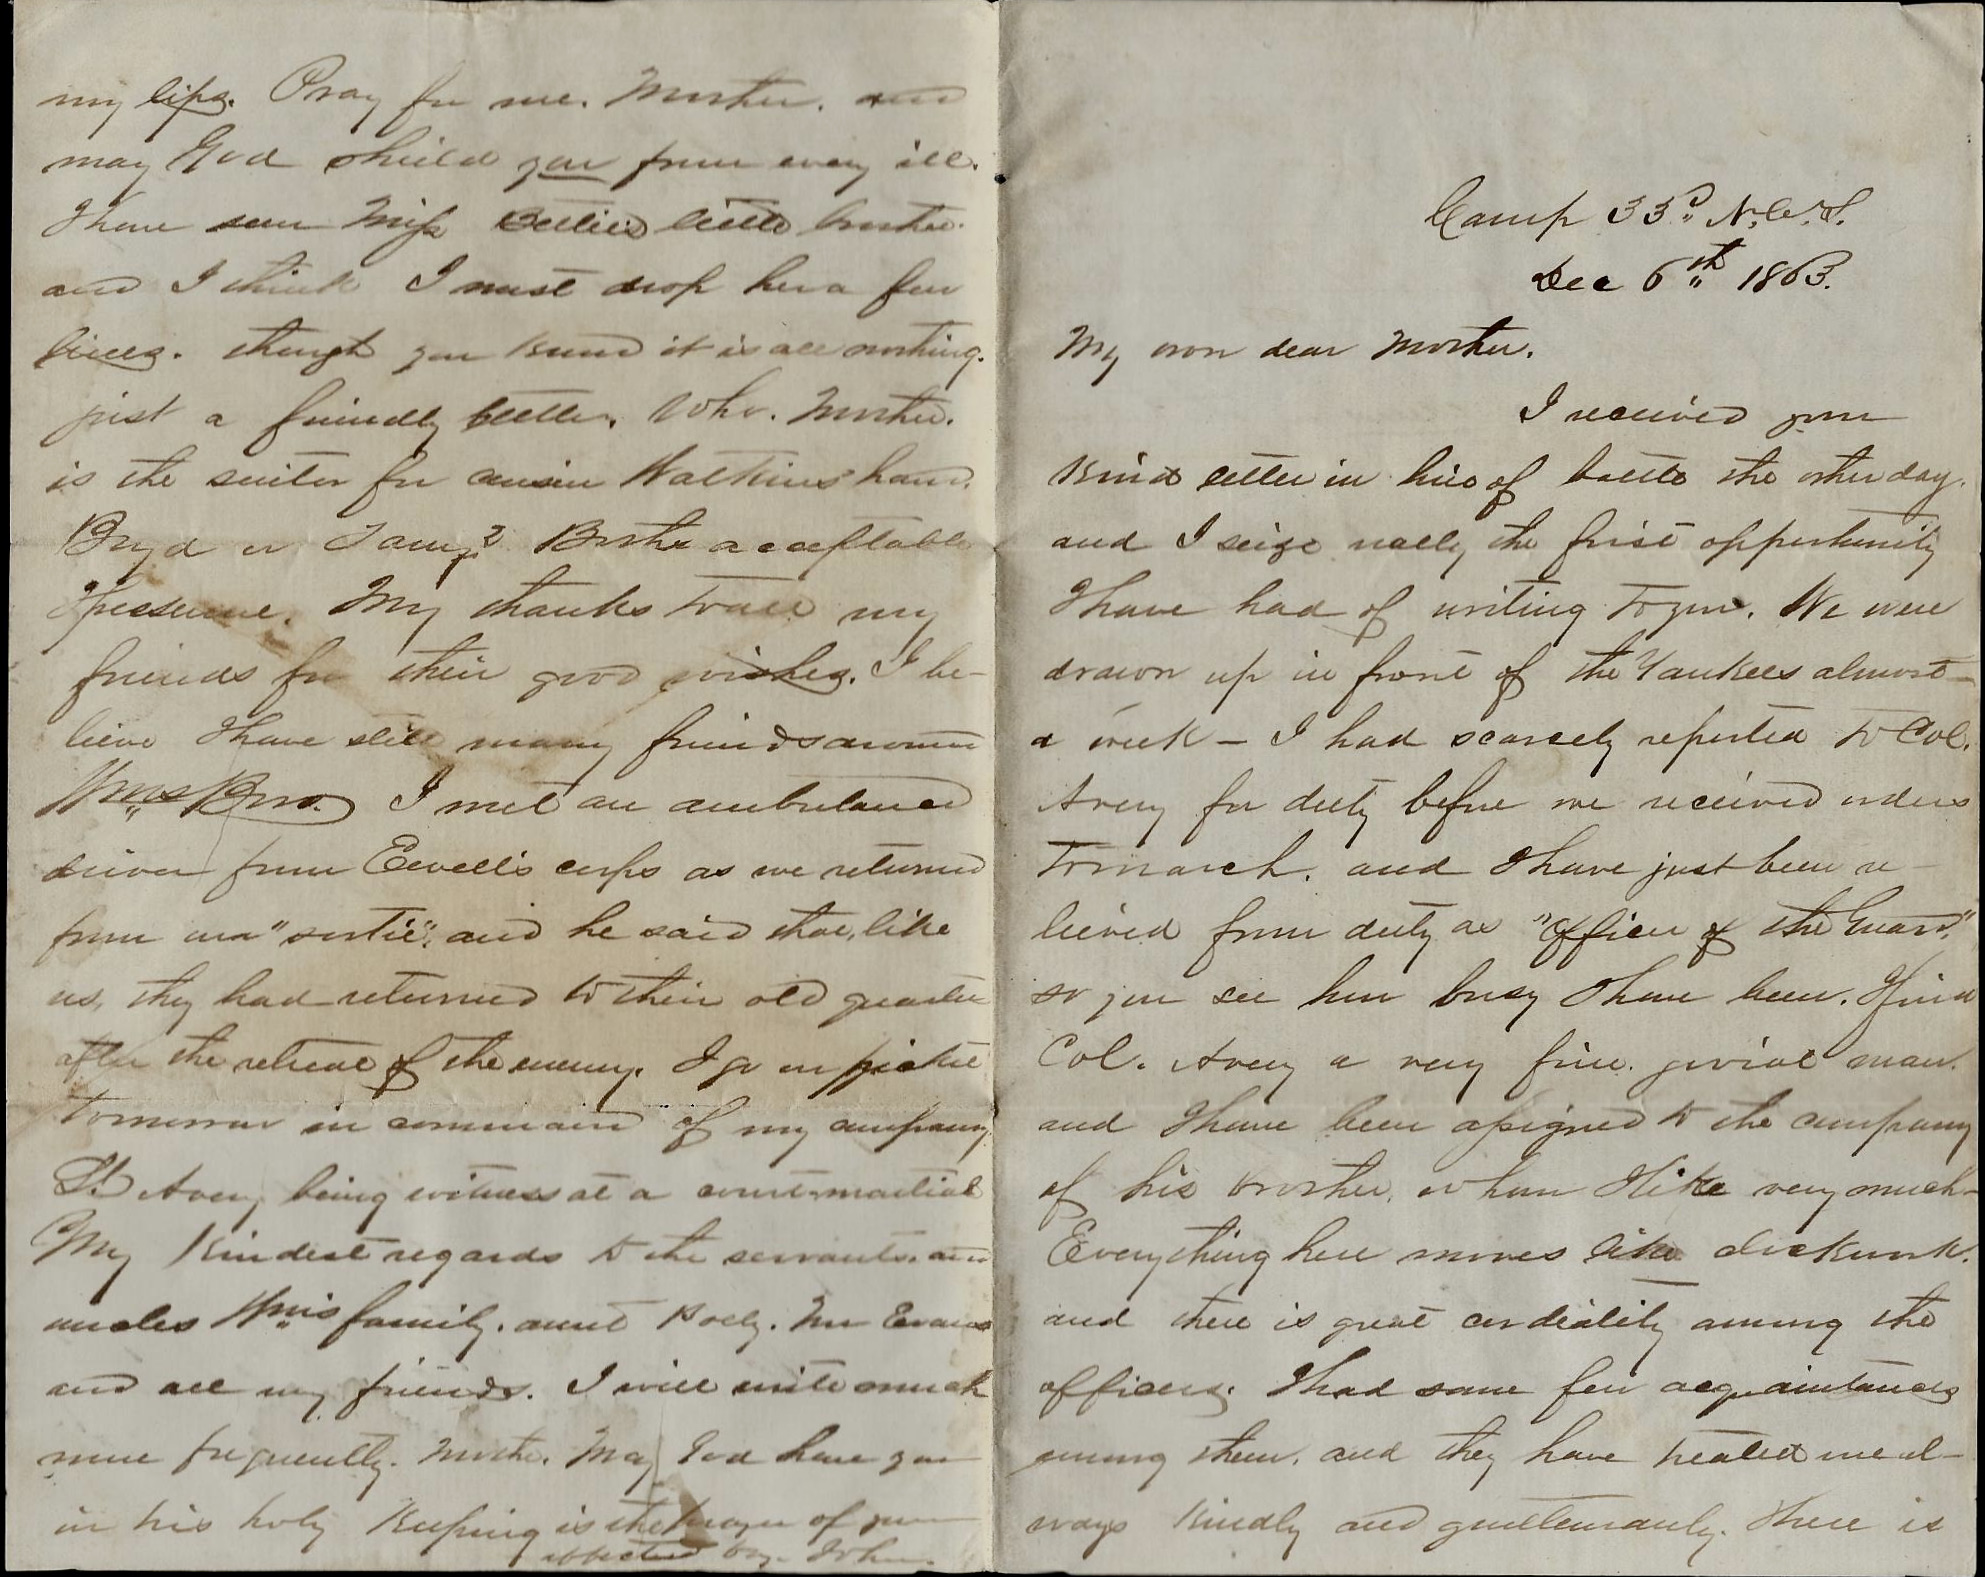 my lips. Pray for me. Mother. and
may God shield you from every ill.
I have seen Miss Bettie's little brother.
and I think I must drop her a few
lines. though you know it is all nothing.
just a friendly letter. Who. Mother.
is the suitor for cousin Watkins' hand.
Boyd or Tony? Both acceptable
I presume. My thanks to all my
friends for their good wishes. I be-
lieve I have still many friends around
Wms Boro. I met an ambulance
driver from Ewell's corps as we returned
from our "sortie", and he said that, like
us, they had returned to their old quarter
after the retreat of the enemy. I go on picket
tomorrow in command of my company
Lt. Avery being witness at a court-martial
My kindest regards to the servants. and
uncles Wms family. aunt Mr Evans
and all my friends. I will write much
more frequently. Mother. May God have you
in his holy keeping is the prayer of your
affectionate boy. John.
Camp 33d N.C.T.
Dec 6th 1863.
My own dear Mother.
I received your
kind letter in line of battle the other day.
and I seize really the first opportunity
I have had of writing to you. We were
drawn up in front of the Yankees almost
a week — I had scarcely reported to Col.
Avery for duty before we received orders
to march. and I have just been re-
lieved from duty as "Officer of the Guard,"
so you see how busy I have been. I find
Col. Avery a very fine. jovial man.
and I have been assigned to the company
of his brother, whom I like very much—
Everything here moves like clockwork.
and there is great cordiality among the
officers. I had some few acquaintances
among them. and they have treated me al-
ways kindly and gentlemanly. There is